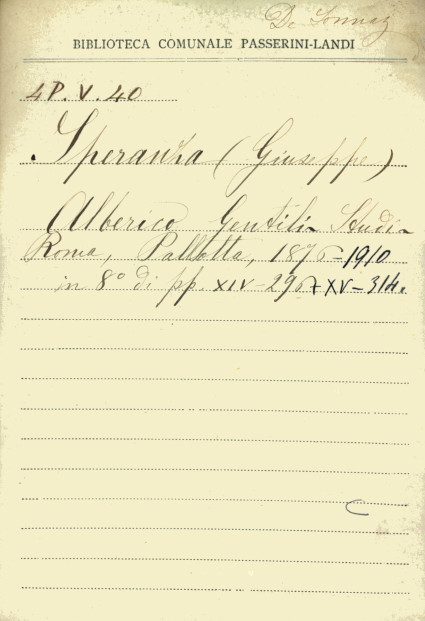 De Sonnaz
BIBLIOTECA COMUNALE PASSERINI-LANDI
4P.V.40
Speranza (Giuseppe)
Alberico Gentili - Studi -
Roma, Pallotta, 1876-1910
in 8° di pp. XIV-296+XV-314.